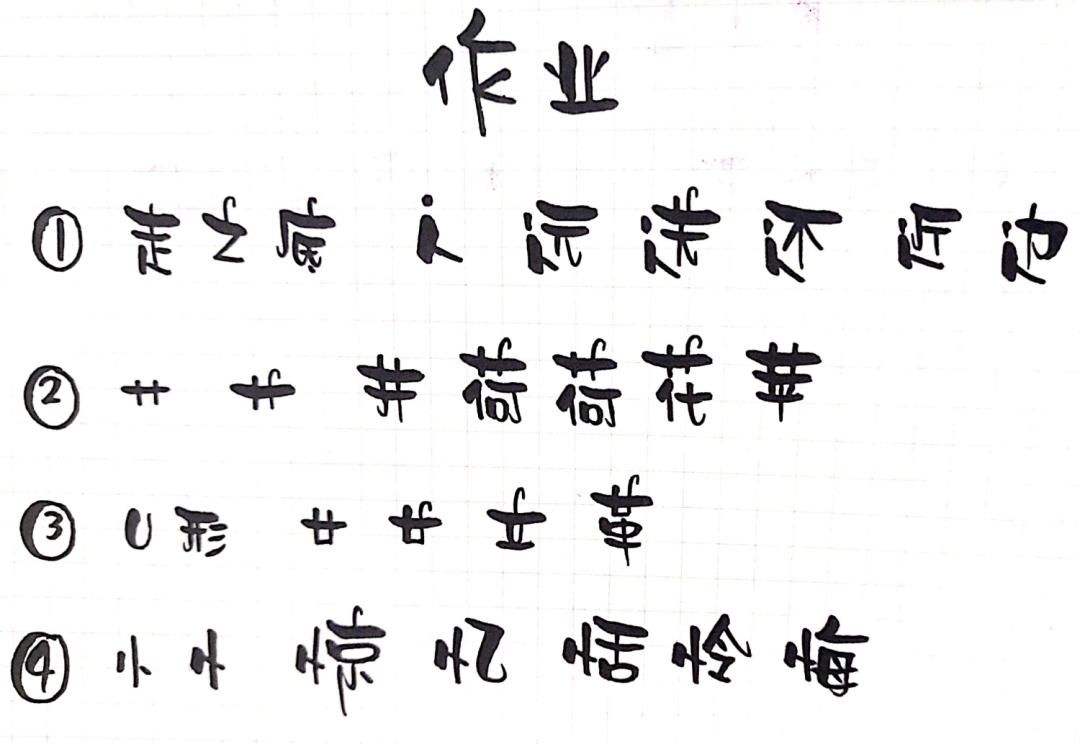 作业
① 走之底 辶 远 送 还 近 边
② 艹 艹 井 荷 荷 花 苹
③ U形 廿 廿 革
④ 忄 忄 惊 忆 恬 怜 悔